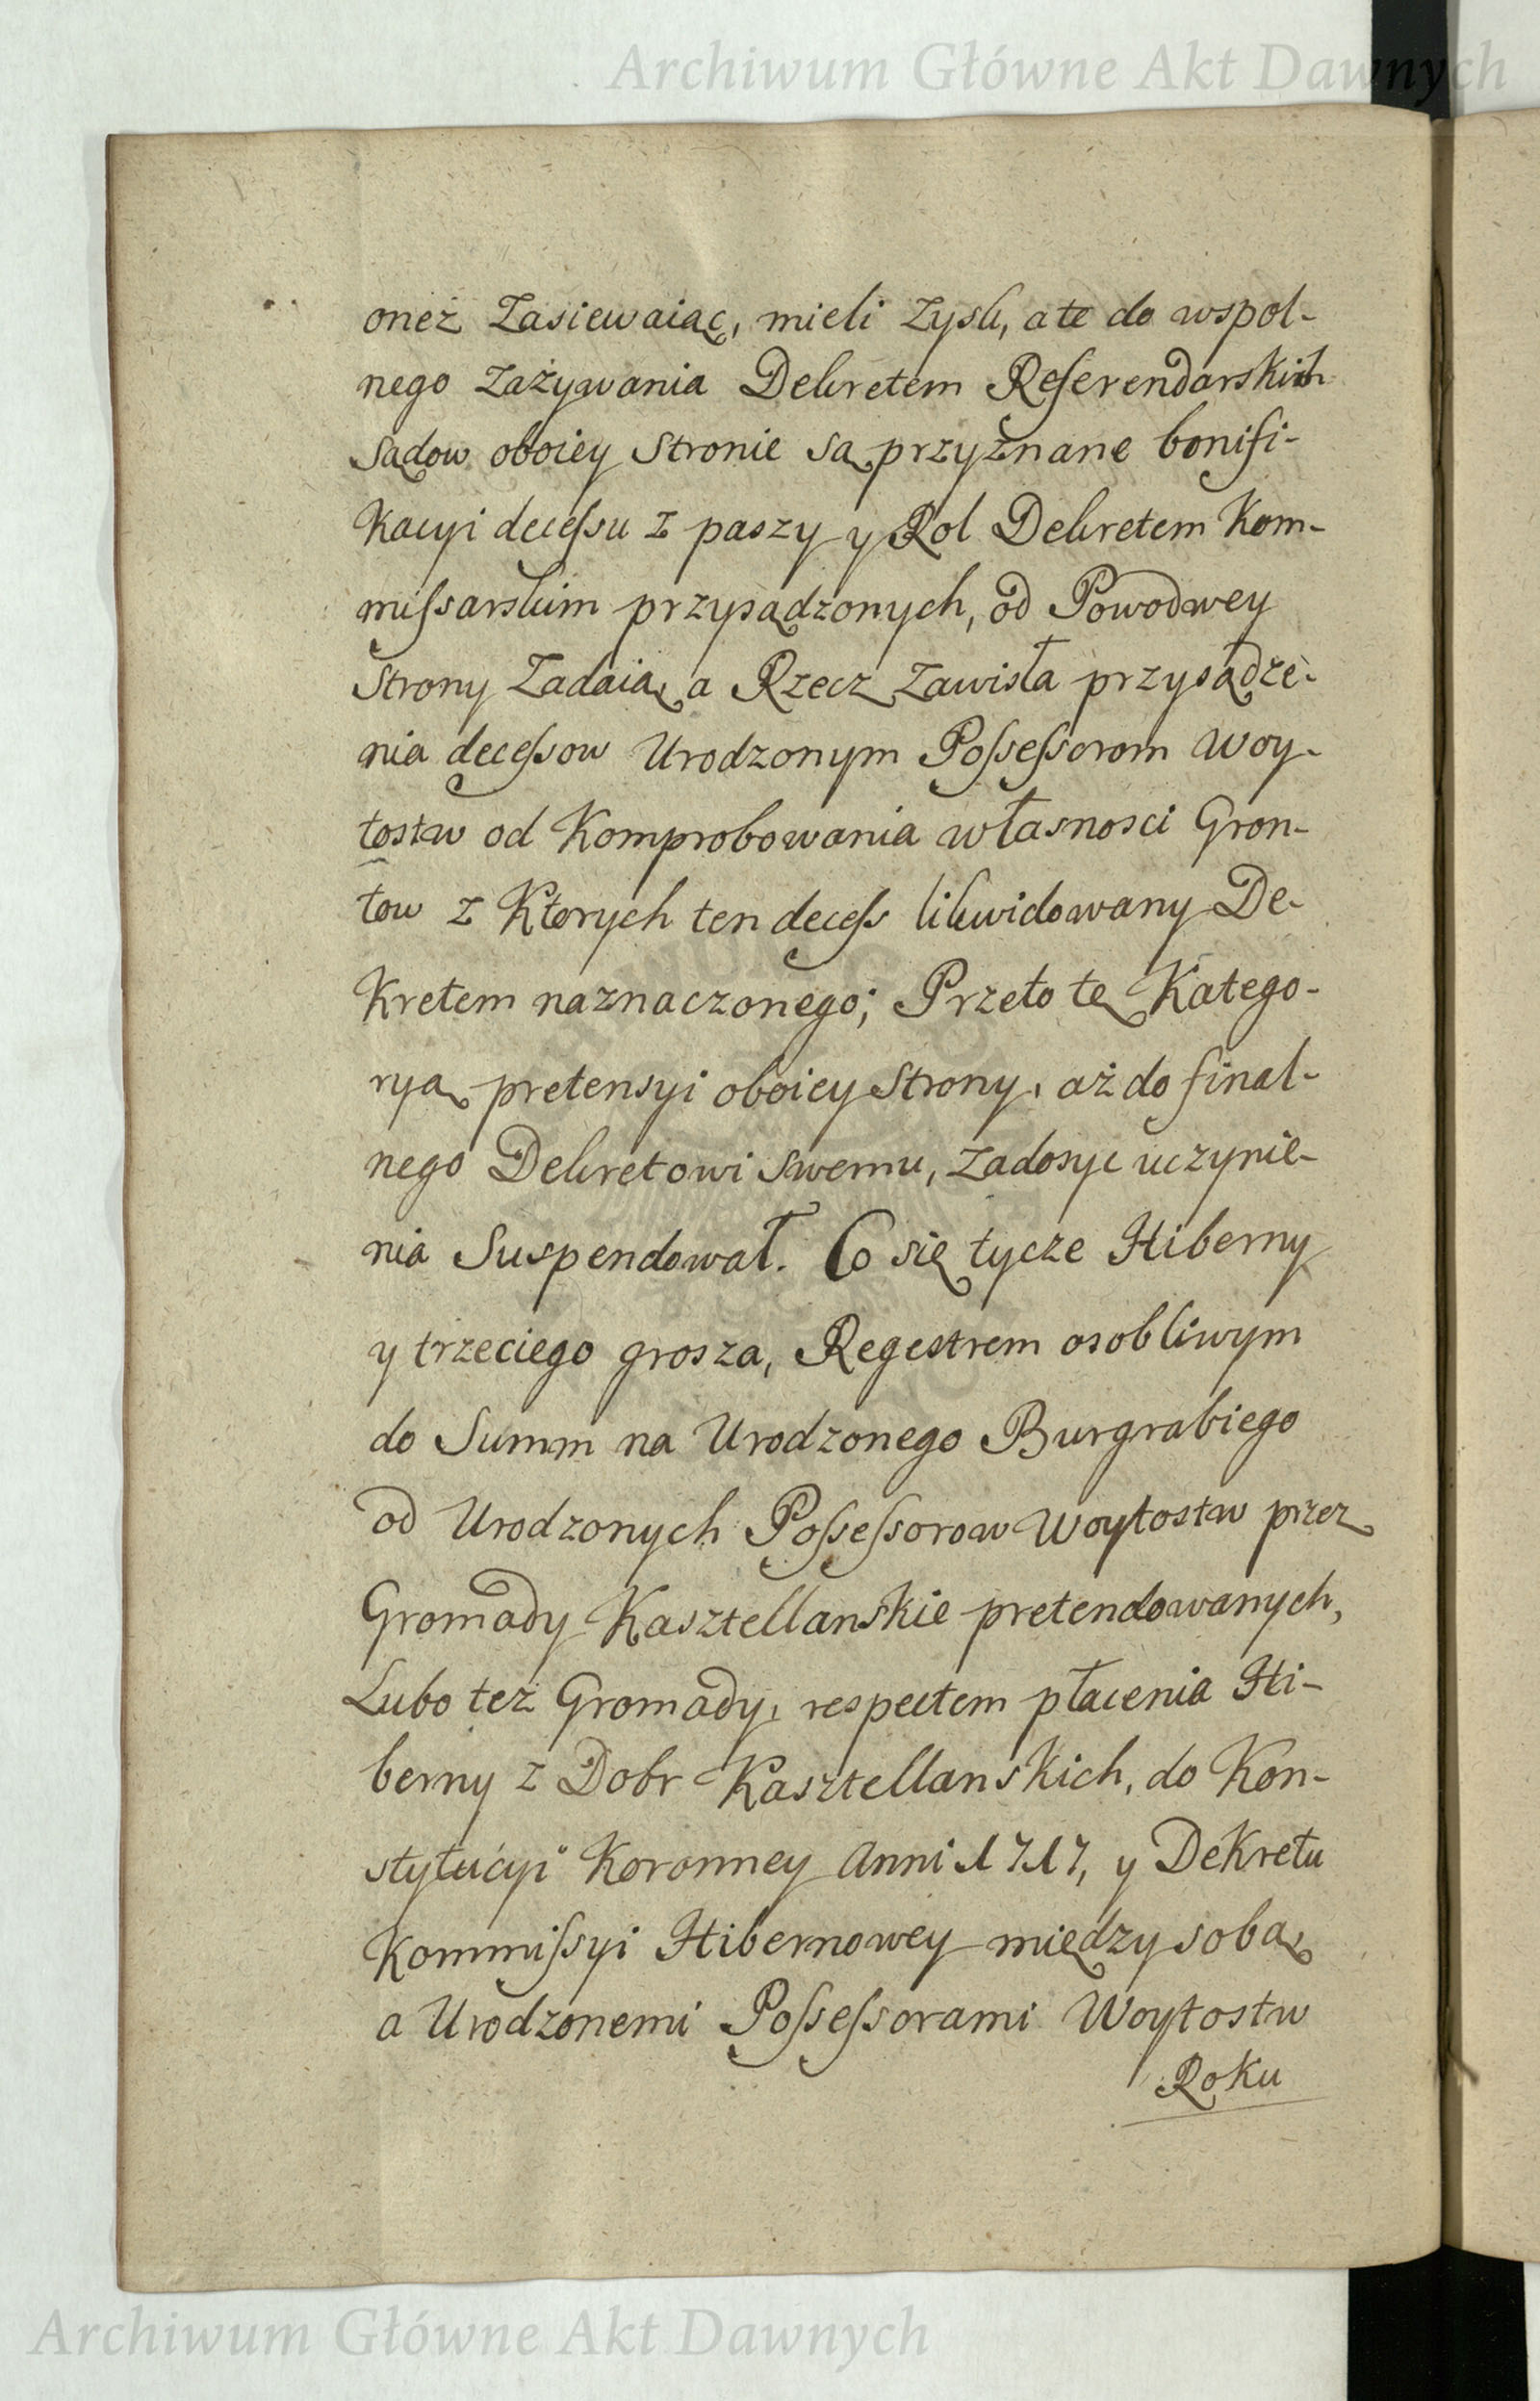 Archiwum Główne Akt Dawnych
oneż Zasiewaiąc, mieli Zysk, a te do wspol-
nego Zażywania Dekretem Referendarskich
sądow oboiey Stronie są przyznane bonifi-
Kacyi decessu z paszy y Rol Dekretem Kom-
missarskim przysądzonych, od Powodwey
Strony Żądaią, a Rzecz Zawisła przysądze-
nia decessow Urodzonym Possessorom Woy-
tostw od Komprobowania własnosci Gron-
tow z Ktorych ten decess likwidowany De-
Kretem naznaczonego; Przeto tę Katego-
ryą pretensyi oboiey Strony, aż do final-
nego Dekretowi swemu, Zadosyc uczynie-
nia Suspendował. Co się tycze Hiberny
y trzeciego grosza, Regestrem osobliwym
do Summ na Urodzonego Burgrabiego
od Urodzonych Possessorow Woytostw przez
Gromady Kasztellanskie pretendowanych,
Lubo też Gromady, respectem płacenia Hi-
berny z Dobr Kasztellanskich, do Kon-
stytucyi Koronney Anni 1717, y DeKretu
Kommissyi Hibernowey między sobą,
a Urodzonemi Possessorami Woytostw
Roku
Archiwum Główne Akt Dawnych